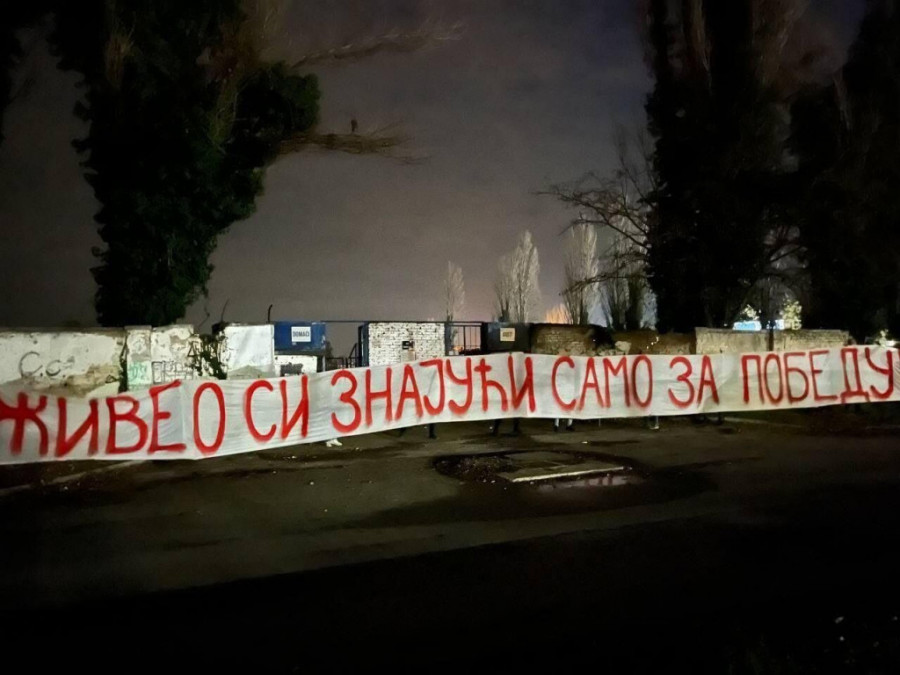 ЖИВЕО СИ ЗНАЈУЋИ САМО ЗА ПОБЕДУ
DOMACI